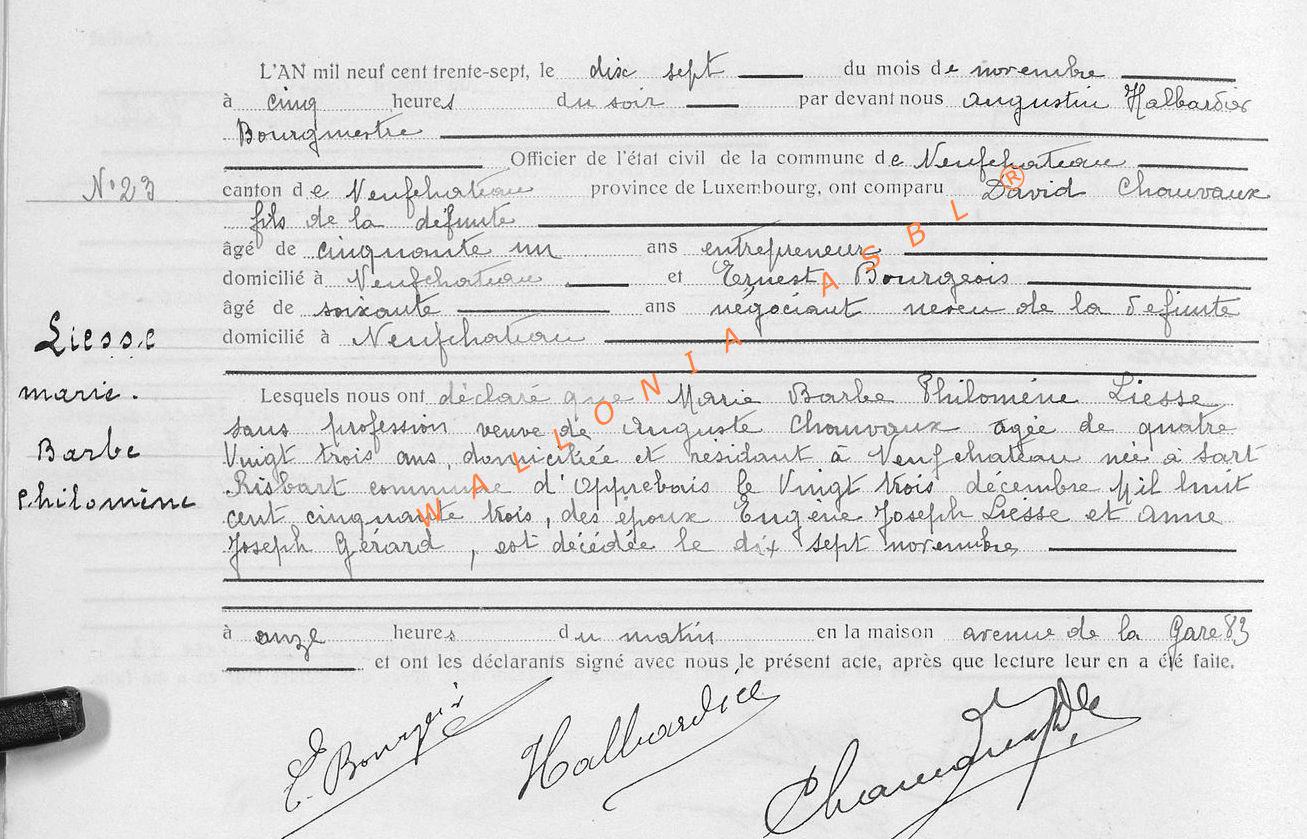 L'AN mil neuf cent trente-sept, le dix sept du mois de novembre
à cinq heures du soir par devant nous Augustin Halbardier
Bourgmestre
Officier de l'état civil de la commune de Neufchateau
N° 23
canton de Neufchateau province de Luxembourg, ont comparu David Chauvaux
fils de la défunte
âgé de cinquante un ans entrepreneur
domicilié à Neufchateau et Ernest Bourgeois
âgé de soixante ans négociant neveu de la défunte
domicilié à Neufchateau
Liesse
marie.
Barbe
Philomène
Lesquels nous ont déclaré que Marie Barbe Philomène Liesse
sans profession veuve de Auguste Chauvaux agée de quatre
Vingt trois ans, domiciliée et résidant à Neufchateau née à Sart
Risbart commune d'Opprebais le Vingt trois décembre Mil huit
cent cinquante trois, des époux Eugène Joseph Liesse et Anne
Joseph Gérard, est décédée le dix sept novembre
à onze heures du matin en la maison avenue de la Gare 83
et ont les déclarants signé avec nous le présent acte, après que lecture leur en a été faite.
E. Bourgeois Halbardier
WALLONIA ASBL ®